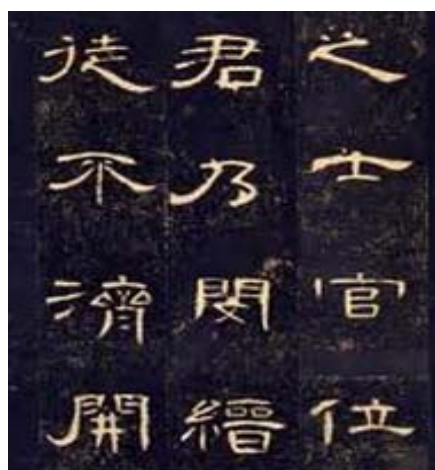 之士官位
君乃閔縉
徒不濟開